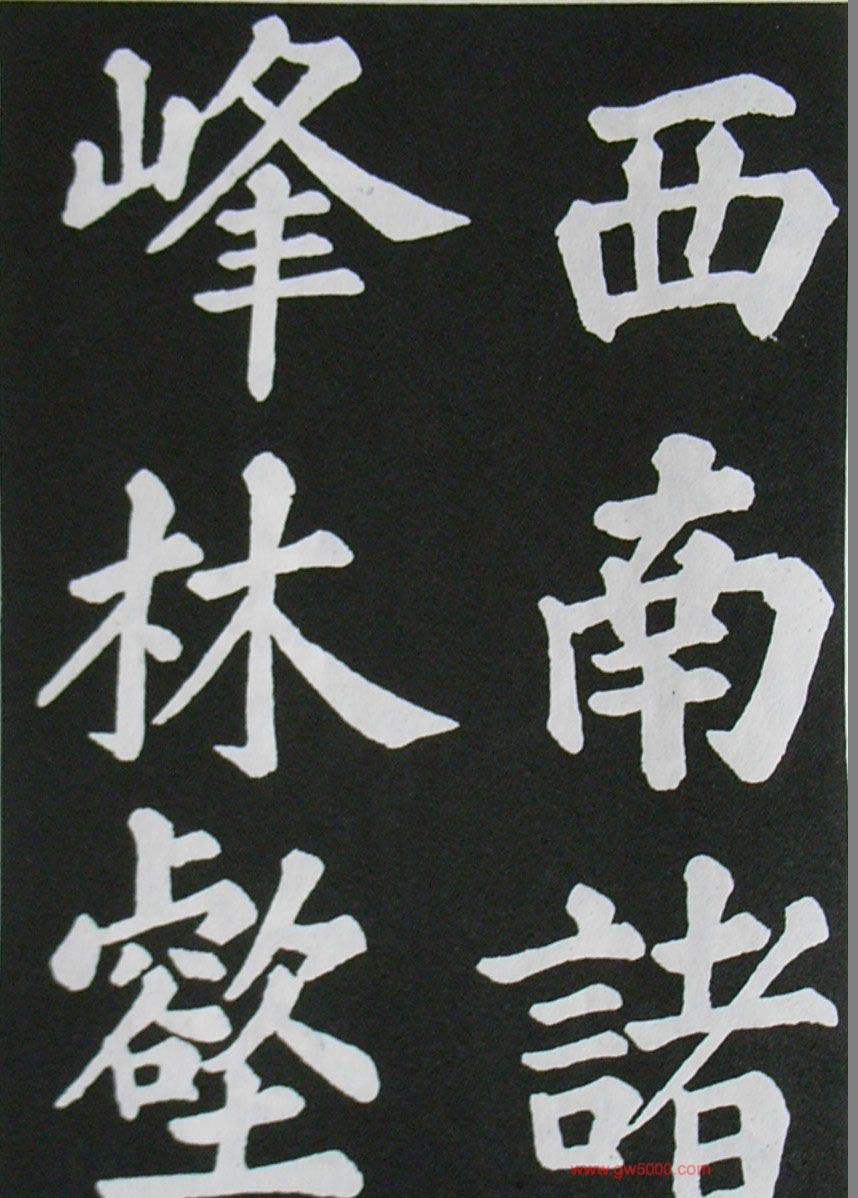 西南諸
峰林壑
www.gw5000.com